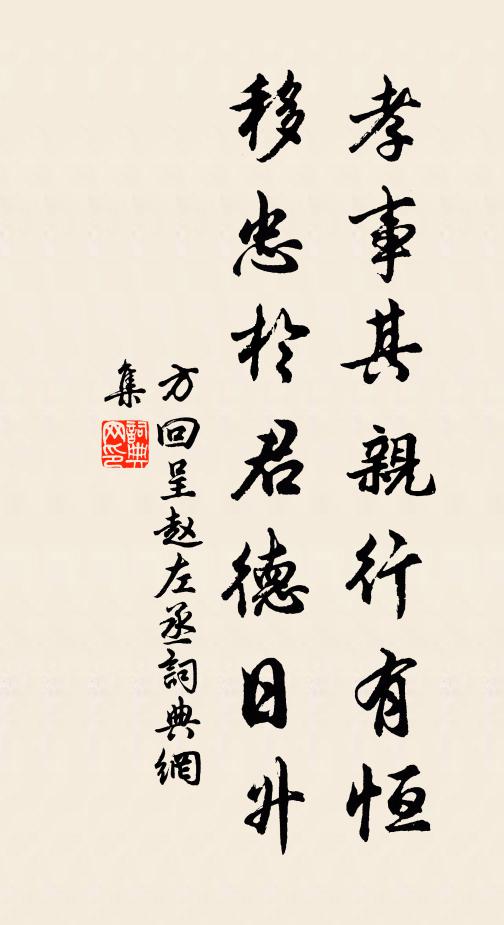 孝事其親行有恒
移忠於君德日升
方回呈赵左丞詞典網
集
詞典網印